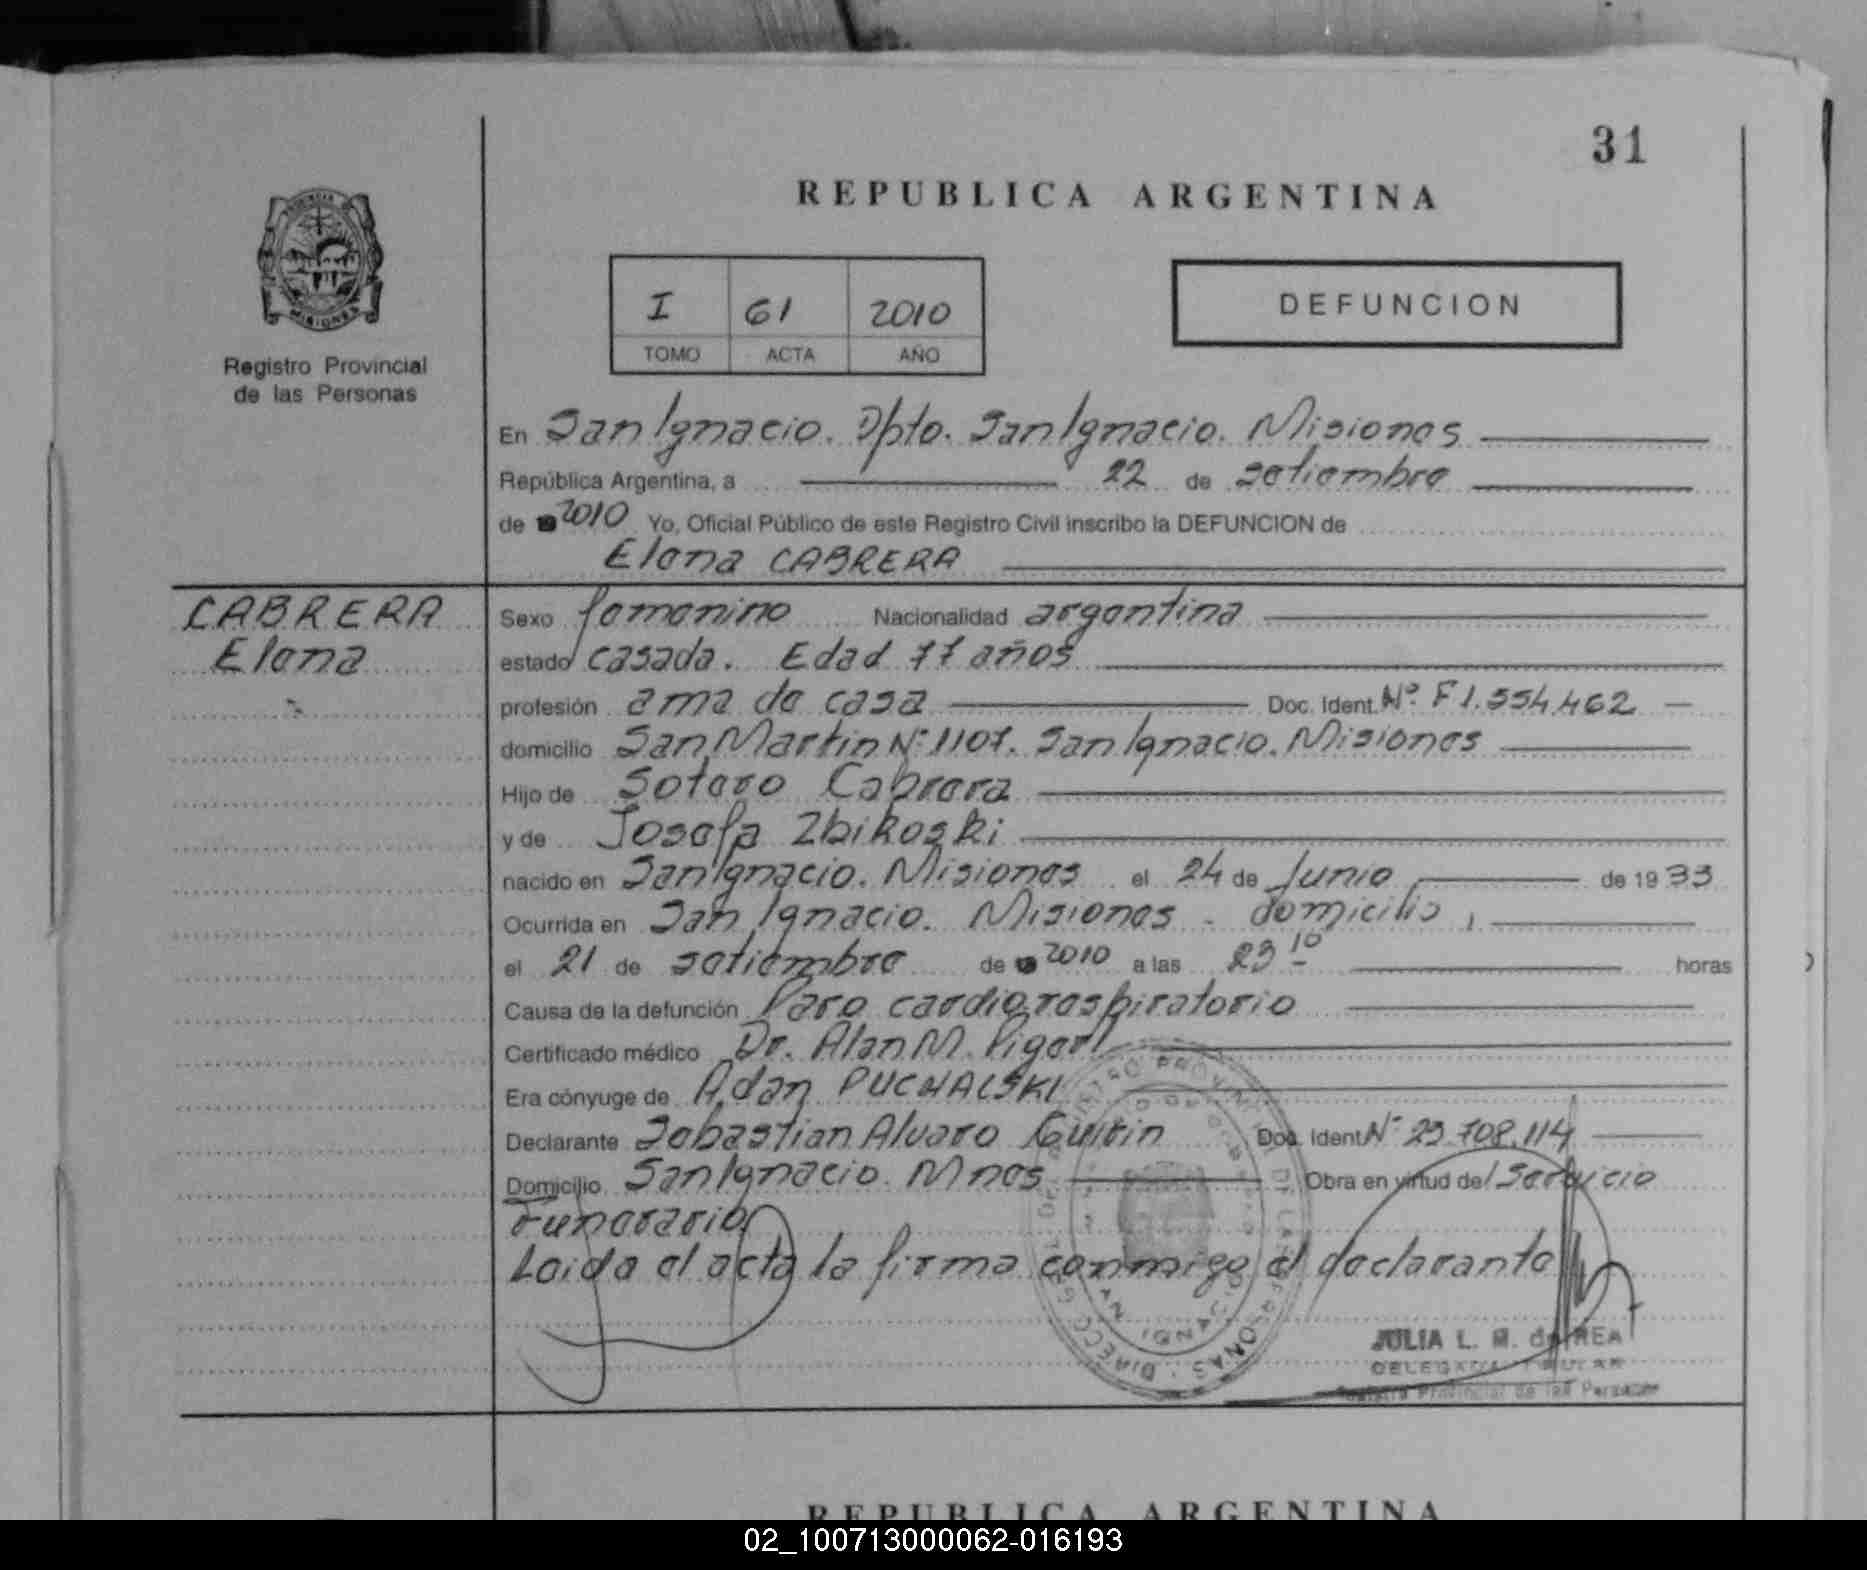 31
REPUBLICA ARGENTINA
MISIONES
Registro Provincial
de las Personas
I 61 2010
TOMO ACTA AÑO
DEFUNCION
En San Ignacio. Dpto. San Ignacio. Misiones
República Argentina, a 22 de setiembre
de 2010 Yo, Oficial Público de este Registro Civil inscribo la DEFUNCION de
Elena CABRERA
CABRERA
Elena
Sexo femenino Nacionalidad argentina
estado casada. Edad 77 años
profesión ama de casa Doc. Ident. Nº F1.554.462
domicilio San Martin Nº 1107. San Ignacio. Misiones
Hijo de Sotero Cabrera
y de Josefa Zbikoski
nacido en San Ignacio. Misiones el 24 de Junio de 1933
Ocurrida en San Ignacio. Misiones - domicilio,
el 21 de setiembre de 2010 a las 23 10 horas
Causa de la defunción Paro cardiorespiratorio
Certificado médico Dr. Alan M.
Era cónyuge de Adan PUCHALSKI
Declarante Sebastian Alvaro Doc. Ident Nº 23.708.114
Domicilio San Ignacio. Mnes Obra en virtud del Servicio
Funerario.
Leida el acta la firma conmigo el declarante
JULIA L. M. de REA
DELEGADA TITULAR
Registro Provincial de las Personas
REPUBLICA ARGENTINA
02_100713000062-016193